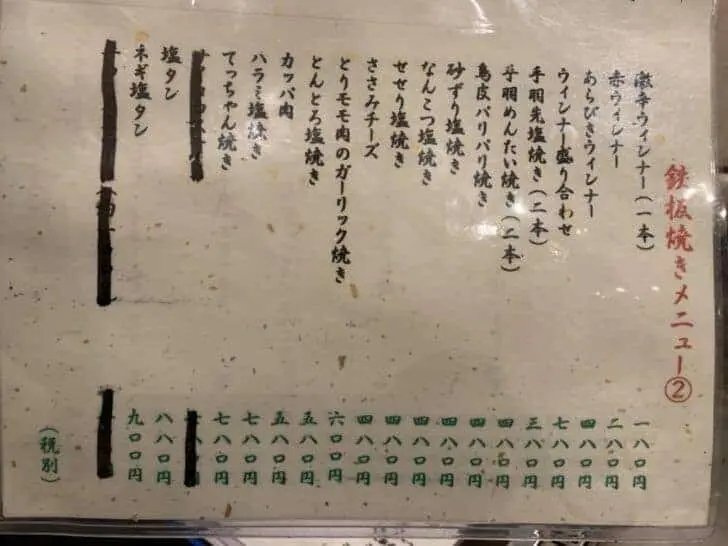 鉄板焼きメニュー②
激辛ウィンナー(一本) 一八〇円
赤ウィンナー 二八〇円
あらびきウィンナー 四八〇円
ウィンナー盛り合わせ 七八〇円
手羽先塩焼き(二本) 三八〇円
手羽めんたい焼き(二本) 四八〇円
鳥皮パリパリ焼き 四八〇円
砂ずり塩焼き 四八〇円
なんこつ塩焼き 四八〇円
せせり塩焼き 四八〇円
ささみチーズ 四八〇円
とりモモ肉のガーリック焼き 六〇〇円
とんとろ塩焼き 五八〇円
カッパ肉 五八〇円
ハラミ塩焼き 七八〇円
てっちゃん焼き 七八〇円
塩タン 八八〇円
ネギ塩タン 九〇〇円
(税別)